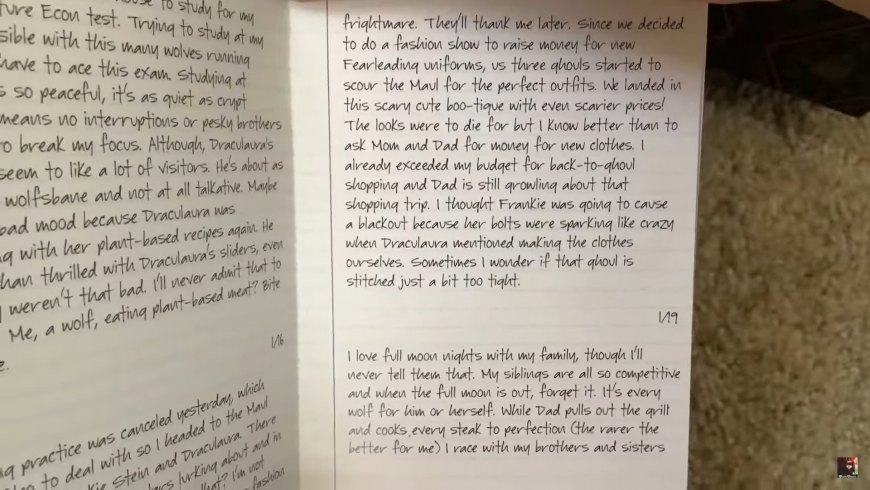 to study for my
ture Econ test. Trying to study at my
sible with this many wolves running
have to ace this exam. Studying at
s so peaceful, it's as quiet as crypt
means no interruptions or pesky brothers
o break my focus. Although, Draculaura's
seem to like a lot of visitors. He's about as
wolfsbane and not at all talkative. Maybe
bad mood because Draculaura was
g with her plant-based recipes again. He
han thrilled with Draculaura's sliders, even
I weren't that bad. I'll never admit that to
Me, a wolf, eating plant-based meat? Bite
e.
1/16
g practice was canceled yesterday, which
to deal with so I headed to the Maul
kie Stein and Draculaura. There
lurking about and in
hat? I'm not
fashion
frightmare. They'll thank me later. Since we decided
to do a fashion show to raise money for new
Fearleading uniforms, us three ghouls started to
scour the Maul for the perfect outfits. We landed in
this scary cute boo-tique with even scarier prices!
The looks were to die for but I know better than to
ask Mom and Dad for money for new clothes. I
already exceeded my budget for back-to-ghoul
shopping and Dad is still growling about that
shopping trip. I thought Frankie was going to cause
a blackout because her bolts were sparking like crazy
when Draculaura mentioned making the clothes
ourselves. Sometimes I wonder if that ghoul is
stitched just a bit too tight.
1/19
I love full moon nights with my family, though I'll
never tell them that. My siblings are all so competitive
and when the full moon is out, forget it. It's every
wolf for him or herself. While Dad pulls out the grill
and cooks every steak to perfection (the rarer the
better for me) I race with my brothers and sisters